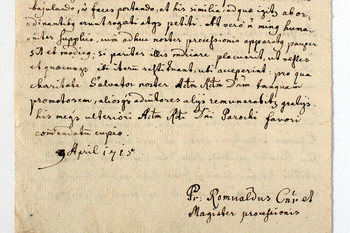 bajulando, et faces portando, et his similia ad quæ igitur ab or-
dinantibus erunt rogati atque petiti. At vero ac mning humani-
ter supplico, cum adhuc noster processionis apparatus pauper
sit et modicus, si pariter illis placuerit, ut vestes
et quæcunque ibi iterum restituant, ubi acceperint: pro qua
charitate Salvator noster Adm. Rdum Dnum tanquam
promotorem, aliosque adiutores alijs remunerabit gratijs.
his meque ulteriori Adm. Rdi Dni Parochi favori
comendatum cupio.
9 April 1715
Pr: Romualdus Cur et
Magister processionis